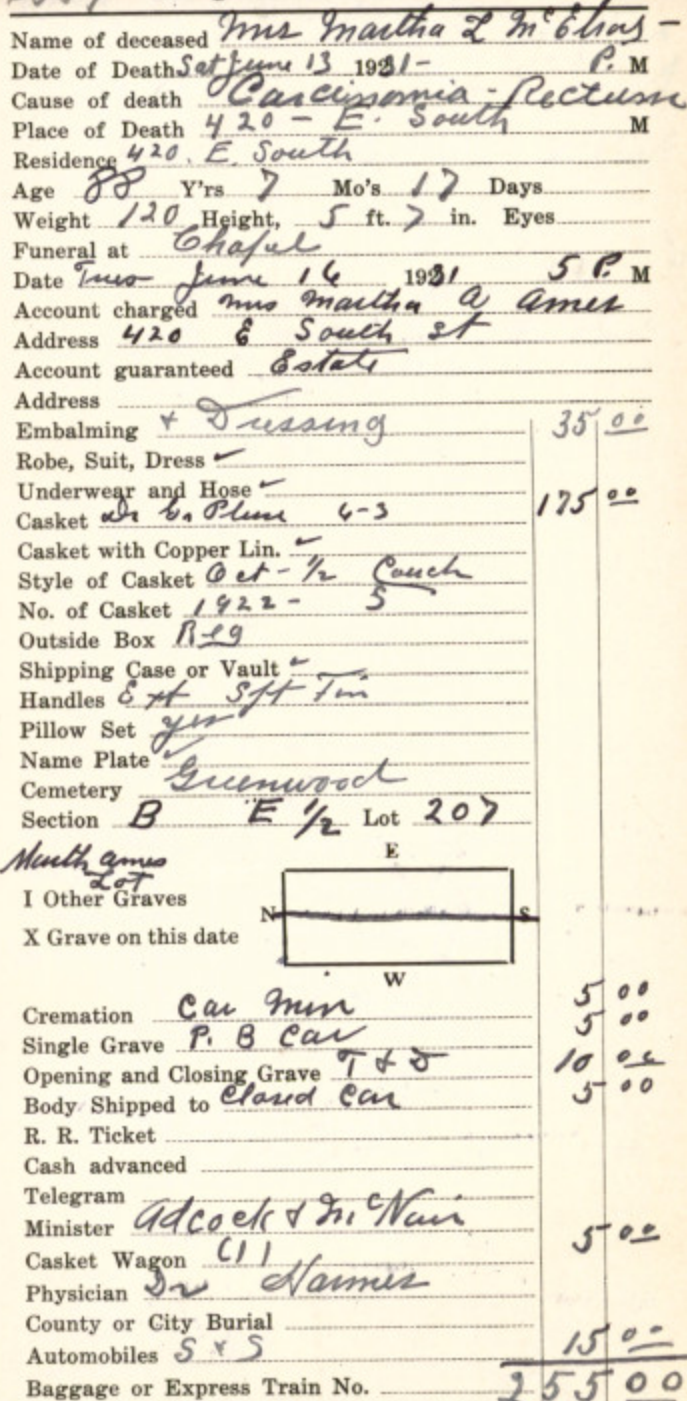 Name of deceased Mrs Martha L McElroy -
Date of Death Sat June 13 1931 - P. M
Cause of death Carcinomia - Rectum
Place of Death 420 - E. South M
Residence 420. E. South
Age 88 Y'rs 7 Mo's 17 Days
Weight 120 Height, 5 ft. 7 in. Eyes
Funeral at Chapel
Date Tues June 16 1931 5 P. M
Account charged Mrs Martha A Ames
Address 420 E South St
Account guaranteed Estate
Address
Embalming + Dressing 35 00
Robe, Suit, Dress ✓
Underwear and Hose ✓
Casket Plush 6-3 175 00
Casket with Copper Lin. ✓
Style of Casket Oct - 1/2 Couch
No. of Casket 1922 - 5
Outside Box Reg
Shipping Case or Vault ✓
Handles Ext
Pillow Set yes
Name Plate ✓
Cemetery Greenwood
Section B E 1/2 Lot 207
Ames
Lot
E
I Other Graves
N S
X Grave on this date
W
Cremation Car Min 5 00
Single Grave P. B Car 5 00
Opening and Closing Grave T & D 10 00
Body Shipped to Closed Car 5 00
R. R. Ticket
Cash advanced
Telegram
Minister Adcock & McNair
Casket Wagon (1) 5 00
Physician Dr
County or City Burial
Automobiles S & S 15 00
Baggage or Express Train No. 255 00